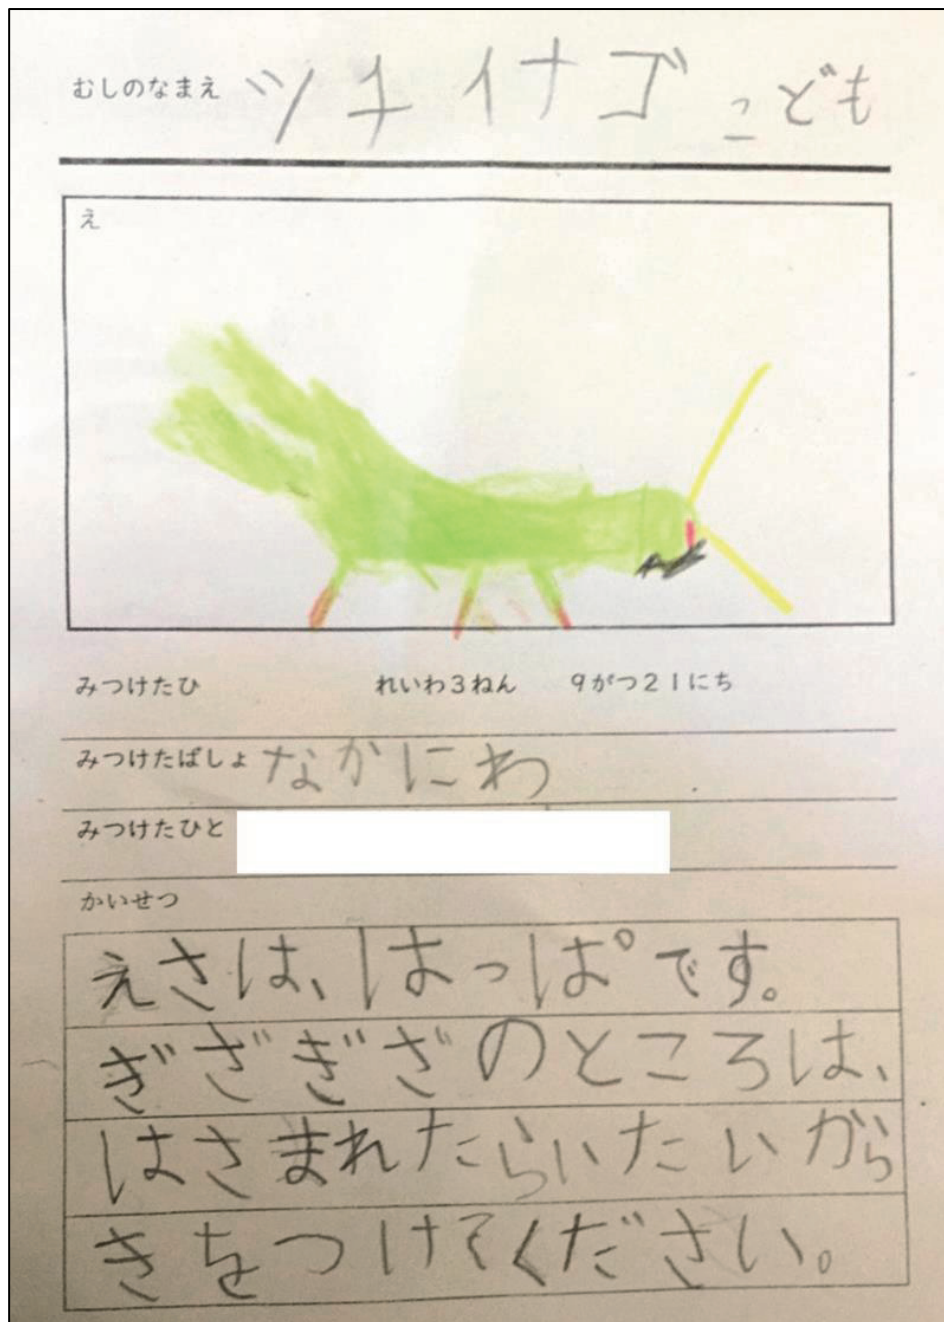 むしのなまえ ツチイナゴ こども
え
みつけたひ れいわ3ねん 9がつ21にち
みつけたばしょ なかにわ
みつけたひと
かいせつ
えさは、はっぱです。
ぎざぎざのところは、
はさまれたらいたいから
きをつけてください。